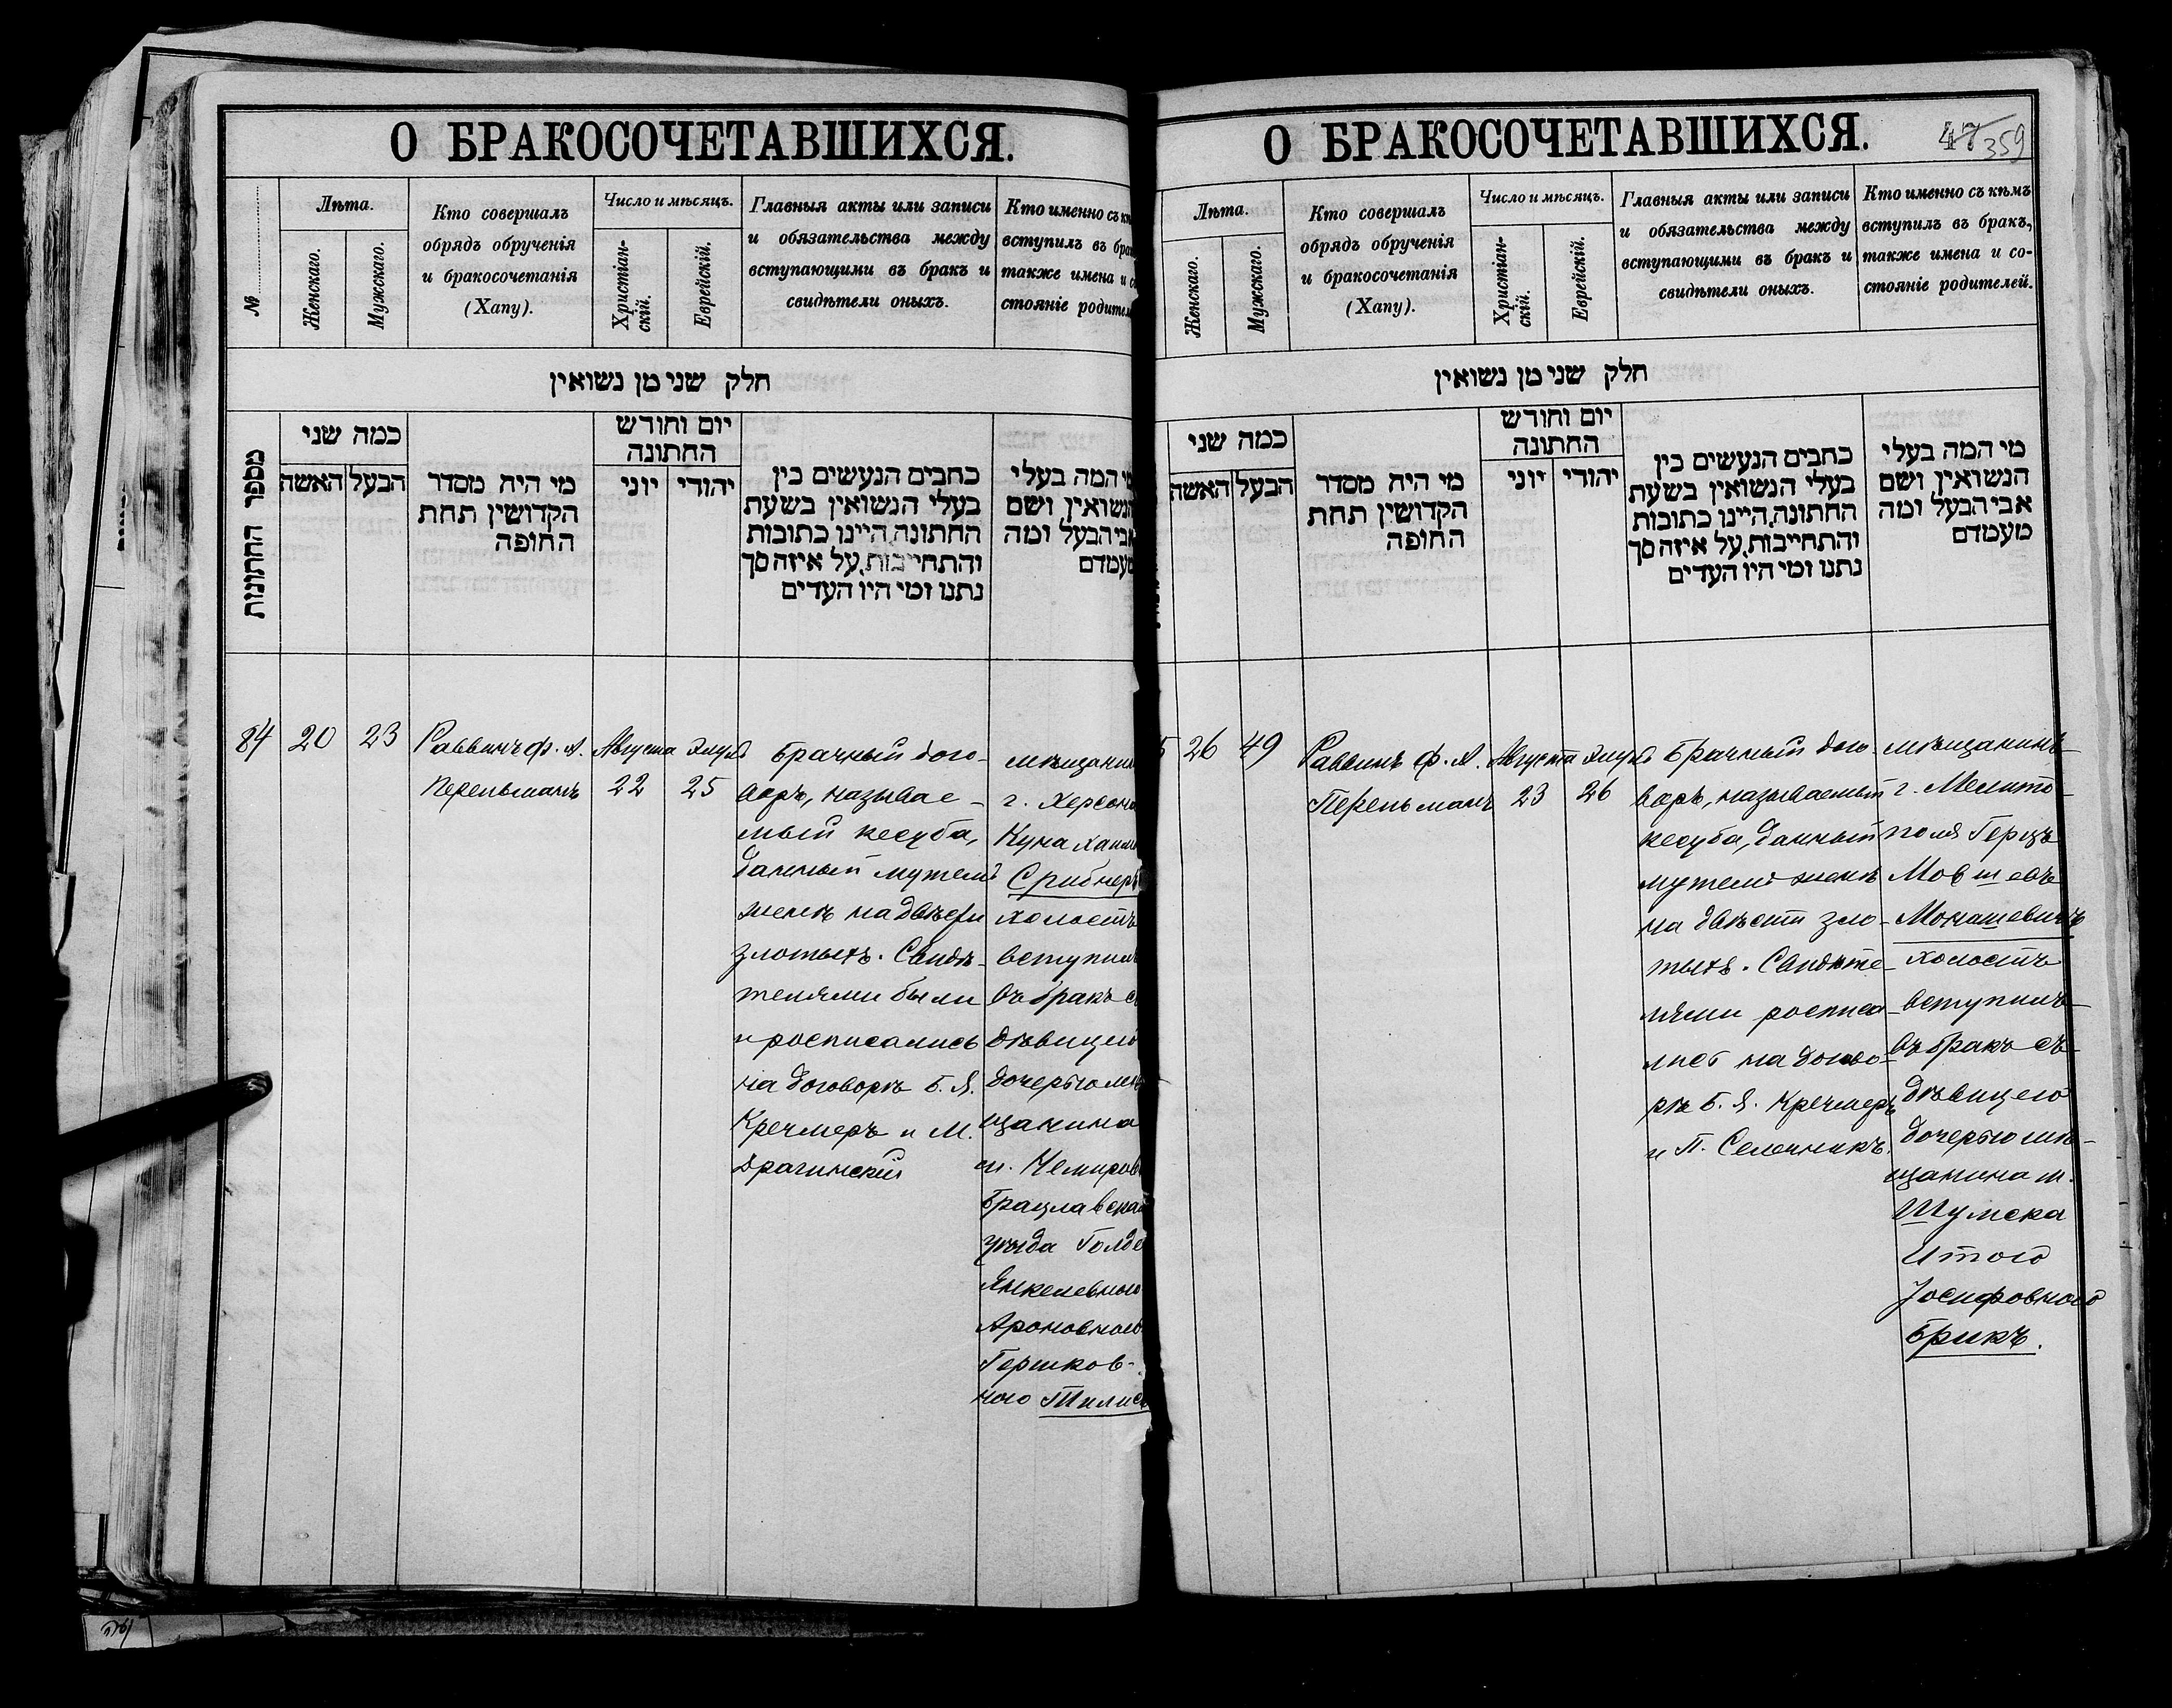 О БРАКОСОЧЕТАВШИХСЯ.
№
Лѣта.
Женскаго.
Мужскаго.
Кто совершалъ
обрядъ обрученія
и бракосочетанія
(Хапу).
Число и мѣсяцъ.
Христіан-
скій.
Еврейскій.
Главныя акты или записи
и обязательства между
вступающими въ бракъ и
свидѣтели оныхъ.
Кто именно съ
вступилъ въ
также имена и
стояніе
חלק שני מן נשואין
מספר החתונות
כמה שני
האשה
הבעל
מי היה מסדר
הקדושין תחת
החופה
יום וחודש
החתונה
יוני
יהודי
כתבים הנעשים בין
בעלי הנשואין בשעת
החתונה, היינו כתובות
והתחייבות, על איזה סך
נתנו ומי היו העדים
המה בעלי
הנשואין ושם
אבי הבעל ומה
מעמדם
84
20
23
Раввинъ Ф. А.
Перельманъ
Августа
22
Элулъ
25
Брачный дого-
воръ, называе-
мый кесуба,
данный мужемъ
женѣ на двѣсти
злотыхъ. Свидѣ-
телями были
и росписались
на договорѣ Б. Я.
Кречмеръ и М.
Драгинскій
мѣщанинъ
г. Херсона
Куна
Срибнеръ
холостъ
вступилъ
въ бракъ съ
дѣвицею
дочерью мѣ-
щанина
м. Немирова
Брацлавскаго
уѣзда Голде
Янкелевною
Ароновною
Гершков-
ною
О БРАКОСОЧЕТАВШИХСЯ.
47 359
Лѣта.
Женскаго.
Мужскаго.
Кто совершалъ
обрядъ обрученія
и бракосочетанія
(Хапу).
Число и мѣсяцъ.
Христіан-
скій.
Еврейскій.
Главныя акты или записи
и обязательства между
вступающими въ бракъ и
свидѣтели оныхъ.
Кто именно съ кѣмъ
вступилъ въ бракъ,
также имена и со-
стояніе родителей.
חלק שני מן נשואין
כמה שני
האשה
הבעל
מי היה מסדר
הקדושין תחת
החופה
יום וחודש
החתונה
יוני
יהודי
כתבים הנעשים בין
בעלי הנשואין בשעת
החתונה, היינו כתובות
והתחייבות, על איזה סך
נתנו ומי היו העדים
מי המה בעלי
הנשואין ושם
אבי הבעל ומה
מעמדם
5
26
49
Раввинъ Ф. А.
Перельманъ
Августа
23
Элулъ
26
Брачный дого-
воръ, называемый
кесуба, данный
мужемъ женѣ
на двѣсти зло-
тыхъ. Свидѣте-
лями росписа-
лись на догово-
рѣ Б. Я. Кречмеръ
и П. Селенникъ.
мѣщанинъ
г. Мелито-
поля Герцъ
Мовшевъ
Монашевичъ
холостъ
вступилъ
въ бракъ съ
дѣвицею
дочерью мѣ-
щанина м.
Шумска
Итою
Іосифовною
Брикъ.